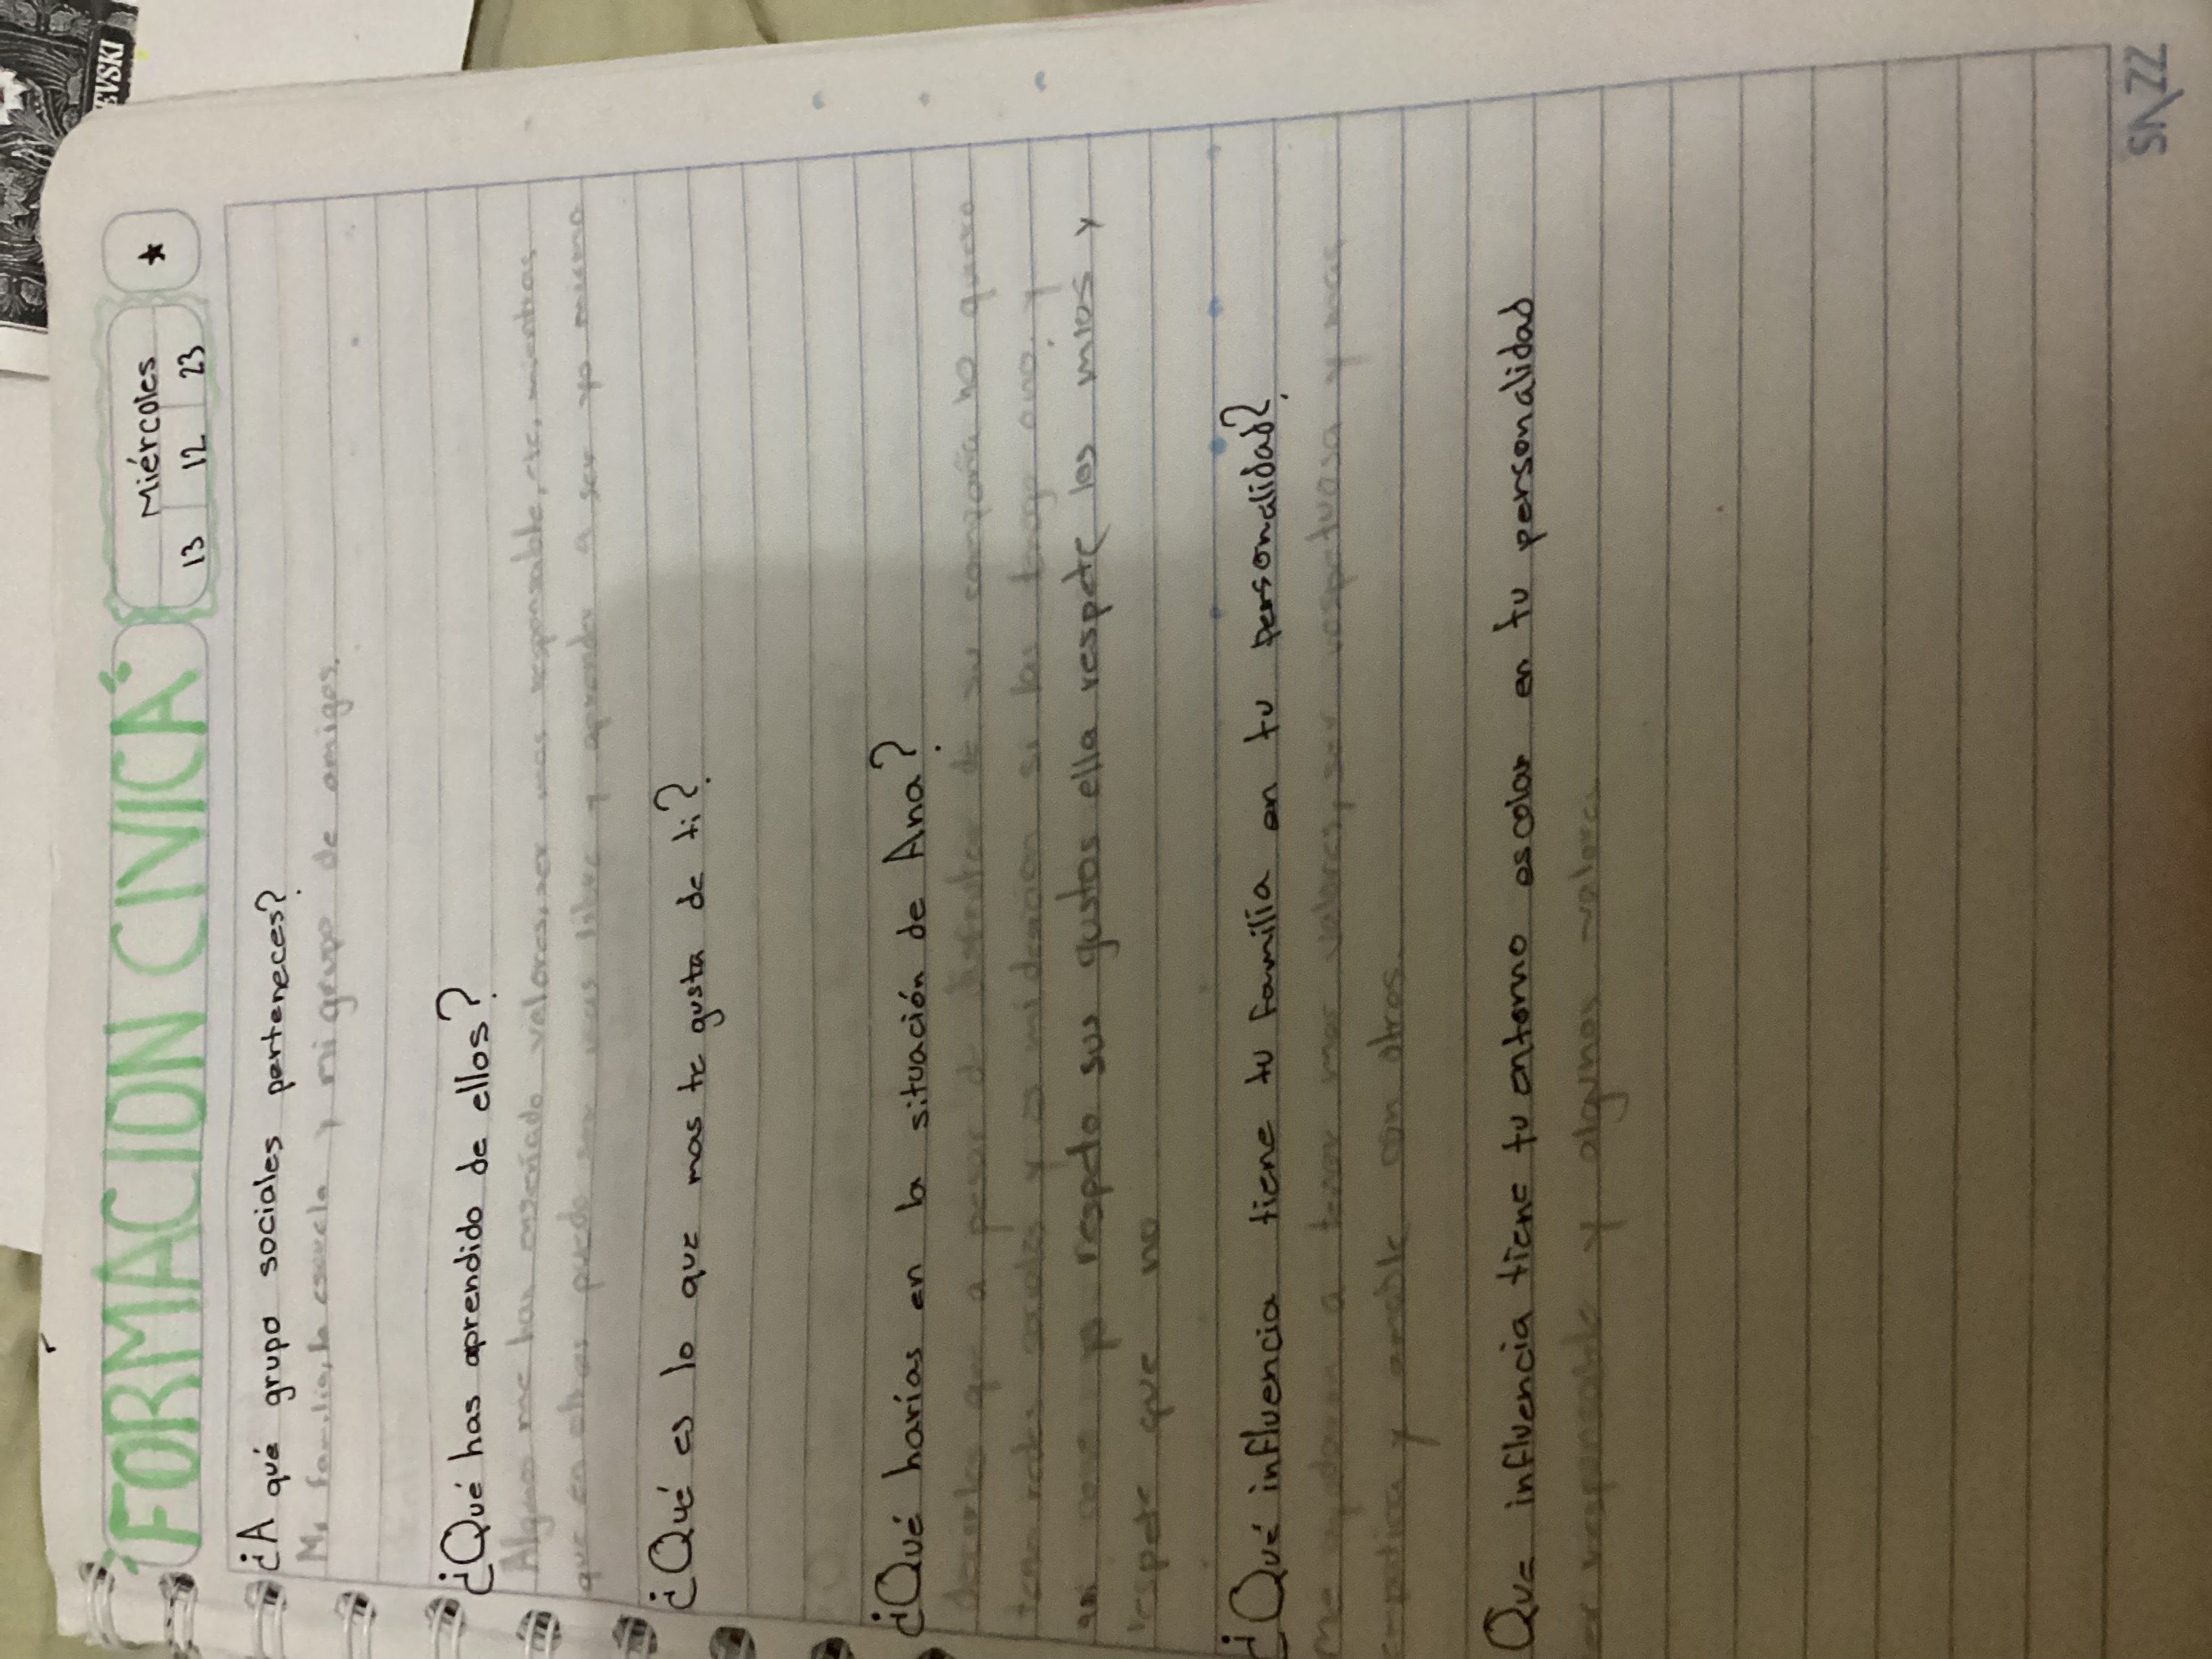 EVSKI
FORMACION CIVICA
Miércoles
13 12 23
¿A qué grupo sociales perteneces?
Mi familia, la escuela y mi grupo de amigos.
¿Qué has aprendido de ellos?
Algunos me han enseñado valores, ser mas responsable, etc, mientras
que en otros puedo ser mas libre y aprendo a ser yo misma
¿Qué es lo que mas te gusta de ti?
¿Qué harías en la situación de Ana?
que a pesar de disfrutar de su compañía no quiero
tener redes sociales y es mi decision si las tengo o no, y
asi como yo respeto sus gustos ella respete los mios y
respete que no
¿Qué influencia tiene tu familia en tu personalidad?
Me ayudaron a tener mas valores, ser respetuosa y mas
empatica y amable con otros.
Que influencia tiene tu entorno escolar en tu personalidad
ser responsable y algunos valores